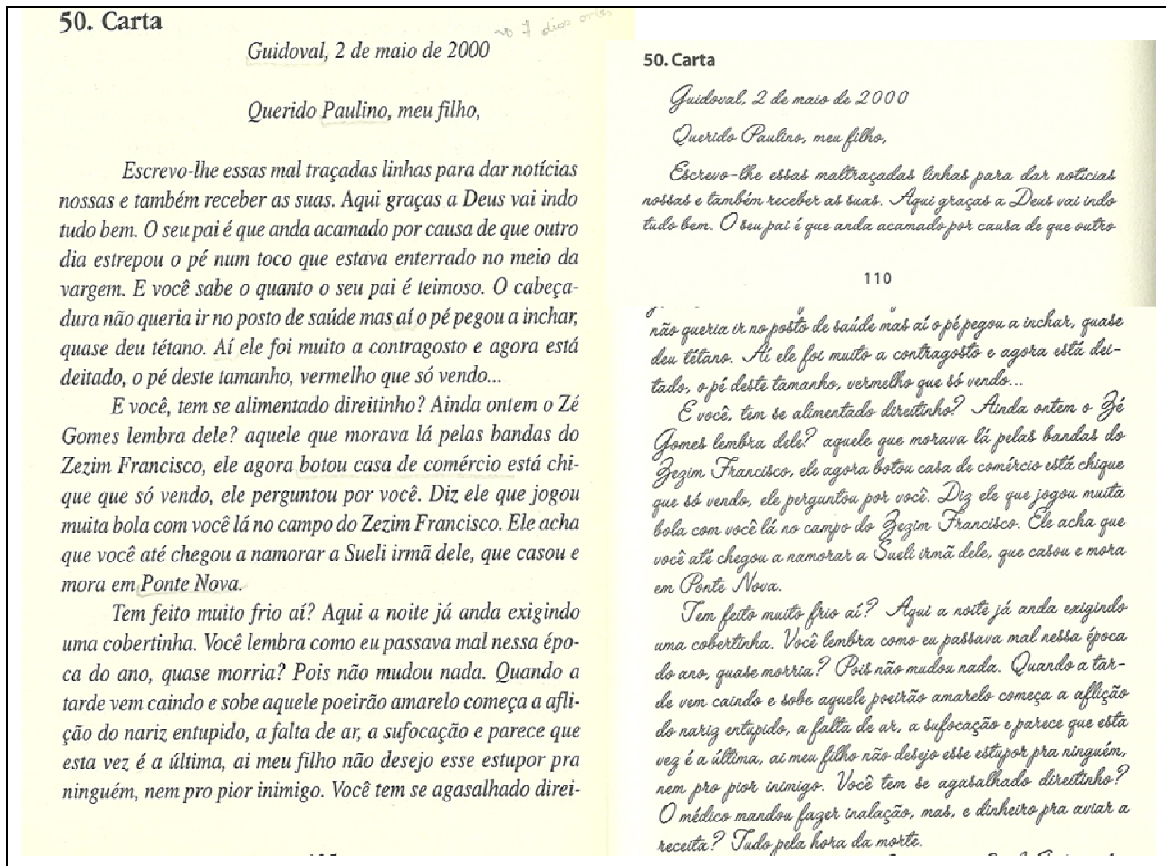 50. Carta
7 dias
Guidoval, 2 de maio de 2000
Querido Paulino, meu filho,
Escrevo-lhe essas mal traçadas linhas para dar notícias
nossas e também receber as suas. Aqui graças a Deus vai indo
tudo bem. O seu pai é que anda acamado por causa de que outro
dia estrepou o pé num toco que estava enterrado no meio da
vargem. E você sabe o quanto o seu pai é teimoso. O cabeça-
dura não queria ir no posto de saúde mas aí o pé pegou a inchar,
quase deu tétano. Aí ele foi muito a contragosto e agora está
deitado, o pé deste tamanho, vermelho que só vendo...
E você, tem se alimentado direitinho? Ainda ontem o Zé
Gomes lembra dele? aquele que morava lá pelas bandas do
Zezim Francisco, ele agora botou casa de comércio está chi-
que que só vendo, ele perguntou por você. Diz ele que jogou
muita bola com você lá no campo do Zezim Francisco. Ele acha
que você até chegou a namorar a Sueli irmã dele, que casou e
mora em Ponte Nova.
Tem feito muito frio aí? Aqui a noite já anda exigindo
uma cobertinha. Você lembra como eu passava mal nessa épo-
ca do ano, quase morria? Pois não mudou nada. Quando a
tarde vem caindo e sobe aquele poeirão amarelo começa a afli-
ção do nariz entupido, a falta de ar, a sufocação e parece que
esta vez é a última, ai meu filho não desejo esse estupor pra
ninguém, nem pro pior inimigo. Você tem se agasalhado direi-
50. Carta
Guidoval, 2 de maio de 2000
Querido Paulino, meu filho,
Escrevo-lhe essas maltraçadas linhas para dar notícias
nossas e também receber as suas. Aqui graças a Deus vai indo
tudo bem. O seu pai é que anda acamado por causa de que outro
110
não queria ir no posto de saúde mas aí o pé pegou a inchar, quase
deu tétano. Aí ele foi muito a contragosto e agora está dei-
tado, o pé deste tamanho, vermelho que só vendo...
E você, tem se alimentado direitinho? Ainda ontem o Zé
Gomes lembra dele? aquele que morava lá pelas bandas do
Zezim Francisco, ele agora botou casa de comércio está chique
que só vendo, ele perguntou por você. Diz ele que jogou muita
bola com você lá no campo do Zezim Francisco. Ele acha que
você até chegou a namorar a Sueli irmã dele, que casou e mora
em Ponte Nova.
Tem feito muito frio aí? Aqui a noite já anda exigindo
uma cobertinha. Você lembra como eu passava mal nessa época
do ano, quase morria? Pois não mudou nada. Quando a tar-
de vem caindo e sobe aquele poeirão amarelo começa a aflição
do nariz entupido, a falta de ar, a sufocação e parece que esta
vez é a última, ai meu filho não desejo esse estupor pra ninguém,
nem pro pior inimigo. Você tem se agasalhado direitinho?
O médico mandou fazer inalação, mas, e dinheiro pra aviar a
receita? Tudo pela hora da morte.